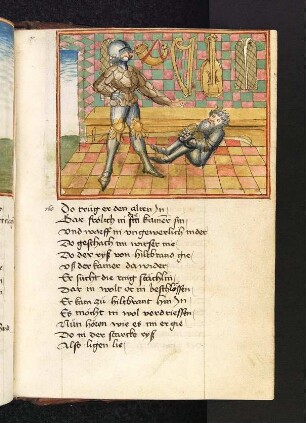 Do trůg er den alten In
Dar frölich in sin kamer sin
Und warff in ungewerlich nider
Do geschach im wirser nie
Do der ryß von hiltbrand gie
Uß der kamer da wider
Er sůcht die ring stächlin
Dar in wolt er in beschlossen
Er kam zů hiltbrant hin In
Es mocht in wol verdriessen
Nůn hören wie es im ergie
Do in der starcke ryß
Also ligen lie